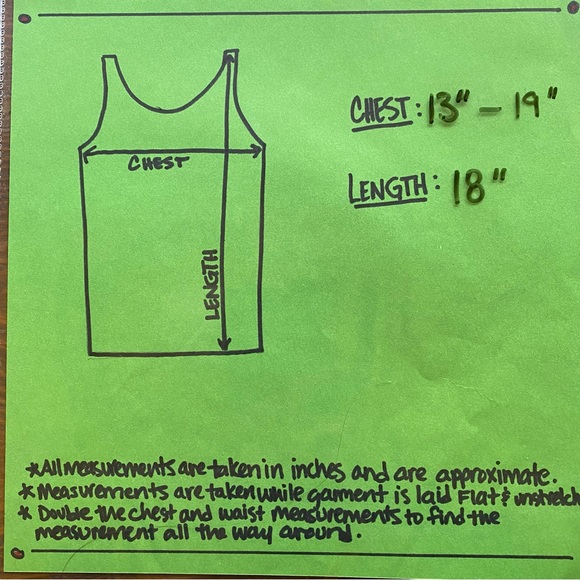 CHEST: 13" - 19"
CHEST
LENGTH: 18"
LENGTH
*All measurements are taken in inches and are approximate.
*Measurements are taken while garment is laid Flat &
* Double the chest and waist measurements to find the
measurement all the way around.